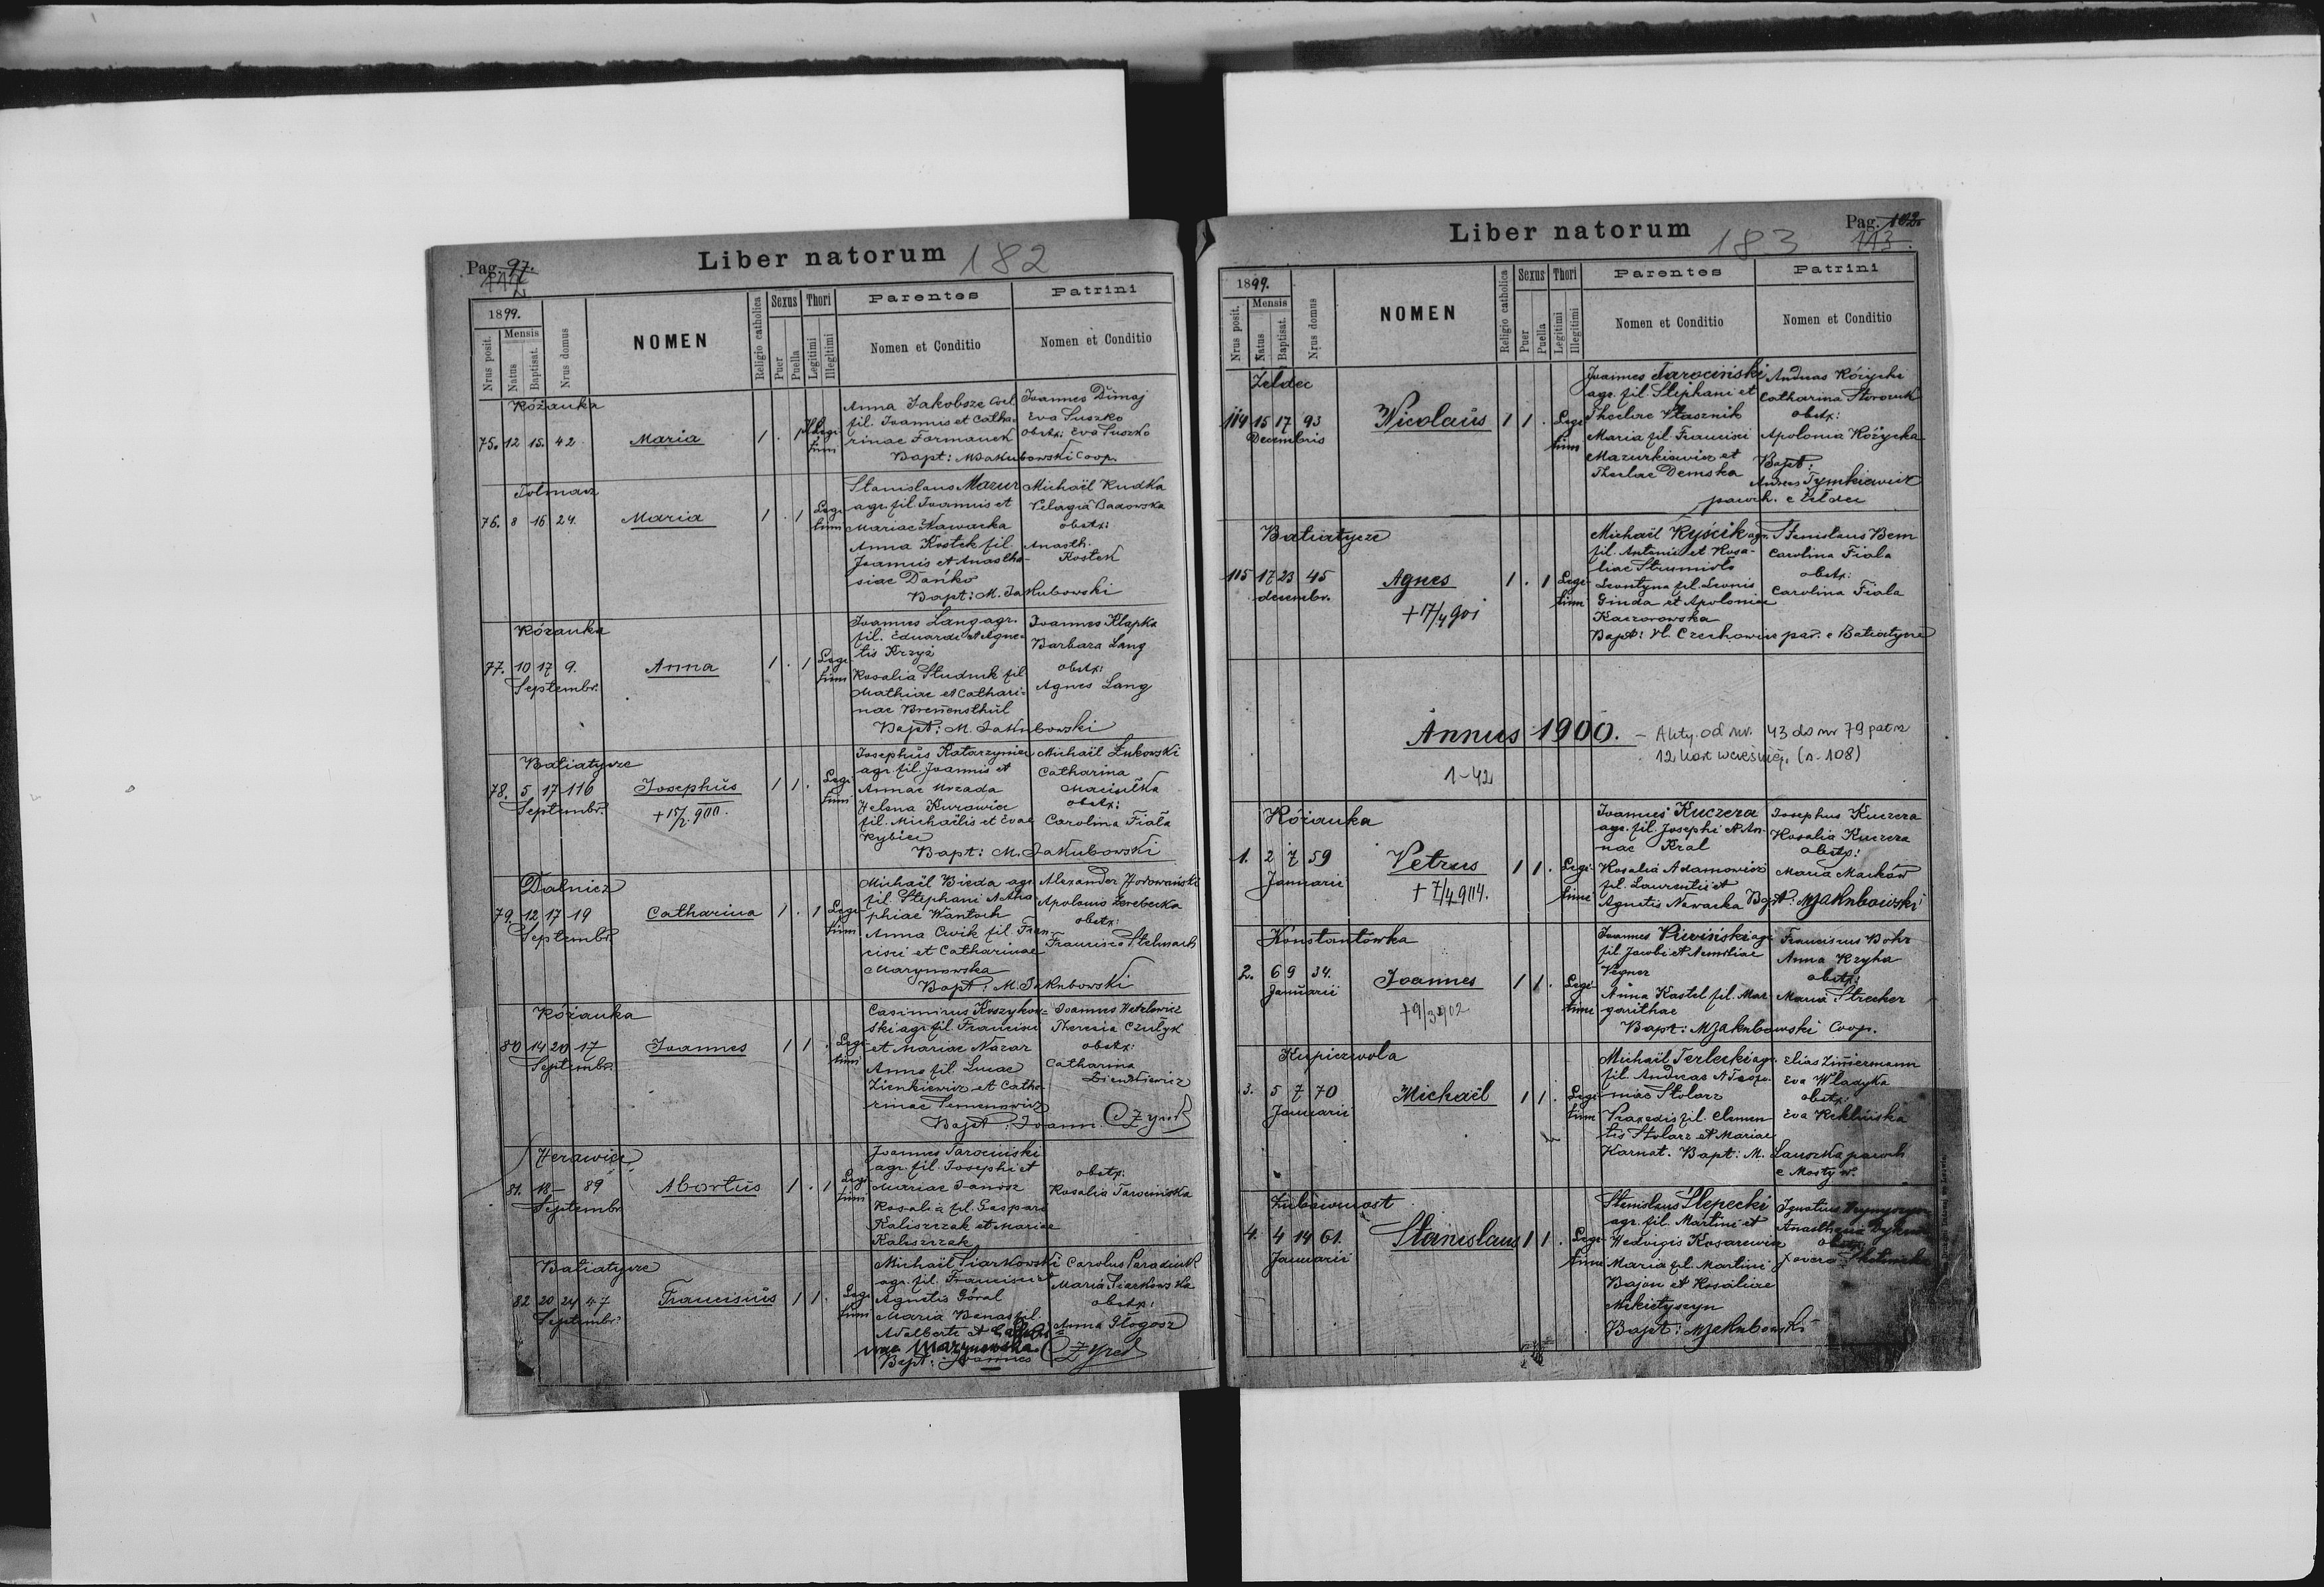 Pag. 97.
112
Liber natorum 182
1899.
Nrus posit.
Mensis
Natus
Baptisat.
Nrus domus
NOMEN
Religio catholica
Sexus
Puer
Puella
Thori
Legitimi
Illegitimi
Parentes
Nomen et Conditio
Patrini
Nomen et Conditio
Różanka
75. 12 15. 42
Maria
1 . 1
Anna Jakobsze coel.
fil. Joannis et Catha-
rinae Formanek
Bapt: MJakubowski Coop.
Joannes Dimaj
Eva Suszko
obstx: Eva Suszko
76. 8 16 24.
Maria
1 . 1
Legi
timi
Stanislaus Mazur
agr. fil. Joannis et
Mariae Kawarka
Anna Kostek fil.
Joannis et Anastha-
siae Dańko
Bapt: M. Jakubowski
Michaël Rudka
Pelagia Badowska
obstx:
Anasth.
Kostek
Różanka
77. 10 17 9.
Septembr.
Anna
1 . 1
Legi
timi
Joannes Lang agr.
fil. Eduardi et Agne-
tis Krzyż
Rosalia Studnik fil.
Mathiae et Cathari-
nae
Bapt: M. Jakubowski
Joannes Klapka
Barbara Lang
obstx:
Agnes Lang
Batiatycze
78. 5 17 116
Septembr.
Josephus
+ 15/2 900.
1 1 .
Legi
timi
Josephus Katarzyniec
agr. fil. Joannis et
Annae Mrzada
Helena Kurowicz
fil. Michaëlis et Evae
Rybicz
Bapt: M. Jakubowski
Michaël Żukowski
Catharina
Maciułka
obstx:
Carolina Fiala
Dalnicz
79. 12 17 19
Septembr.
Catharina
1 . 1
Legi-
timi
Michaël Bieda agr.
fil. Stephani et
phiae Wantoch
Anna Cwik fil. Fran-
cisci et Catharinae
Marynowska
Bapt: M. Jakubowski
Alexander
Apolonia Żerebecka
obstx:
Francisca Stelmach
Różanka
80 14 20 17
Septembr.
Joannes
1 1 .
Legi
timi
Casimirus Koszykow-
ski agr. fil. Francisci
et Mariae Nazar
Anna fil. Lucae
Zienkiewicz et Catha-
rinae Semenowicz
Bapt: Joann. Czyrek
Joannes
Theresia Czułyk
obstx:
Catharina
Zienkiewicz
81. 18 — 89
Septembr.
Abortus
1 . 1
Legi
timi
Joannes Tarociński
agr. fil. Josephi et
Mariae Janosz
Rosalia fil. Gaspari
Kaliszczak et Mariae
Kaliszczak
obstx:
Rosalia Tarocińska
Batiatycze
82 20 24 47
Septembr.
Franciscus
1 1 .
Legi
timi
Michaël Siarkowski
agr. fil. Francisci et
Agnetis Góral
Maria Banas fil.
Adalberti et
nae Marynowska
Bapt: Joannes Czyrek
Carolus Paradiuk
Maria Siarkowska
obstx:
Anna Głogosz
Liber natorum 183
Pag. 102
113.
1899.
Nrus posit.
Mensis
Natus
Baptisat.
Nrus domus
NOMEN
Religio catholica
Sexus
Puer
Puella
Thori
Legitimi
Illegitimi
Parentes
Nomen et Conditio
Patrini
Nomen et Conditio
Żeldec
114 15 17 93
Decembris
Nicolaus
1 1 .
Legi
timi
Joannes Tarociński
agr. fil. Stephani et
Theclae Ptasznik
Maria fil. Francisci
Mazurkiewicz et
Theclae Demska
Andreas Różycki
Catharina Storozuk
obstx:
Apolonia Różycka
Bapt:
Andreas Tymkiewicz
paroch. e Żeldec
Batiatycze
115 17 23 45
decembr.
Agnes
+ 17/4 901
1 . 1
Legi-
timi
Michaël Kyścik agr.
fil. Antonii et Rosa-
liae Strumidło
Leontyna fil. Leonis
Ginda et Apoloniae
Kaczorowska
Bapt: Vl. Czechowicz par. e Batiatycze
Stanislaus Bem
Carolina Fiala
obstx:
Carolina Fiala
Annus 1900. – Akty od nr. 43 do nr 79 patrz
12 kart wcześniej. (n. 108)
1-42
Różanka
1. 2 7 59
Januarii
Petrus
+ 7/4 904.
1 1 .
Legi-
timi
Joannes Kuczera
agr. fil. Josephi et An-
nae Kral
Rosalia Adamowicz
fil. Laurentii et
Agnetis Nowacka Bapt. MJakubowski
Josephus Kuczera
Rosalia Kuczera
obstx:
Maria Marków
Konstantówka
2. 6 9 34.
Januarii
Joannes
+ 9/3 902
1 1 .
Legi-
timi
Joannes Piwiński agr.
fil. Jacobi et
Wegner
Anna Kastel fil. Mar-
garithae
Bapt: MJakubowski Coop.
Franciscus Bohr
Anna Kryha
obstx:
Maria Strecker
Kupiczwola
3. 5 7 70
Januarii
Michaël
1 1 .
Legi
timi
Michaël Terlecki agr.
fil. Andreae et
niae Stolarz
Praxedis fil. Clemen-
tis Stolarz et Mariae
Karnat. Bapt: M. paroch
e Mosty w.
Elias Zimmermann
Eva Władyka
obstx:
Eva
Zubowmost
4. 4 14 61.
Januarii
Stanislaus
1 1 .
Legi-
timi
Stanislaus Ślepecki
agr. fil. Martini et
Hedvigis Kosarewicz
Maria fil. Martini
Bajan et Rosaliae
Mikietyszyn
Bapt: MJakubowski
Ignatius
Anasthasia
obstx: